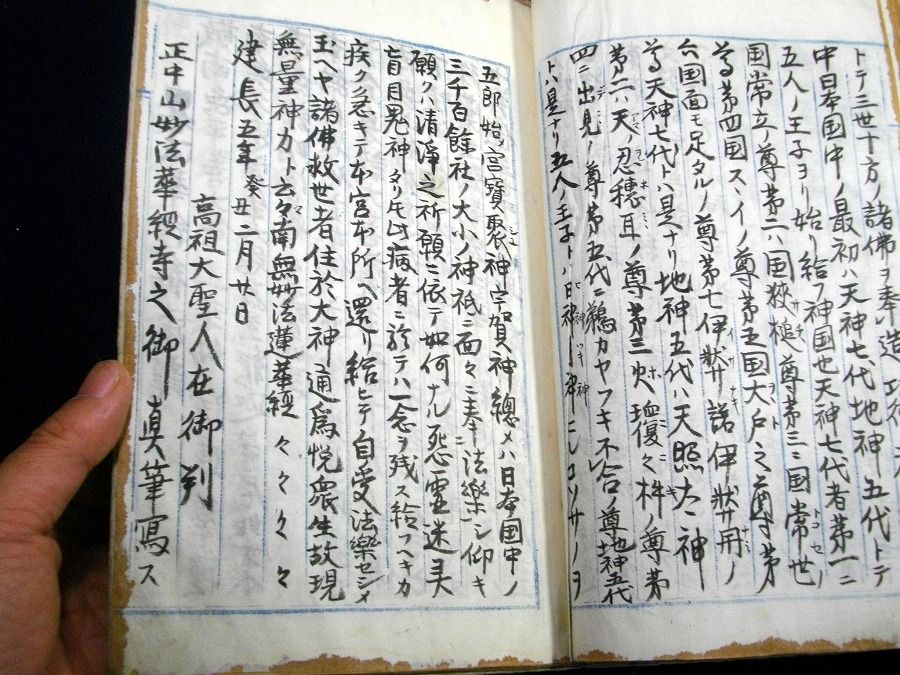 トテ三世十方ノ諸佛ヲ奉造
中日本国中ノ最初ハ天神七代地神五代トテ
五人ノ王子ヨリ始リ給フ神国也天神七代者第一ニ
国常立ノ尊第二ハ国狭槌ノ尊第三ニ国常世ノ
尊第四国スイノ尊第五国大戸之尊第
六国面モ足タルノ尊第七伊弉諾伊弉冊ノ
尊天神七代トハ是ナリ地神五代ハ天照大神
第二ハ天ノ忍穂耳ノ尊第三火瓊々杵ノ尊第
四ニ出見ノ尊第五代ニ鵜カヤフキ不合ノ尊地神五代
トハ是ナリ五人ノ王子トハ日神
五郎始ノ宮寳聚神宇賀神總メハ日本国中ノ
三千百餘社ノ大小ノ神祇ニ面々ニ奉ニ法樂シ仰キ
願クハ清浄之祈願ニ依テ如何ナル死霊迷
盲目鬼神タリ此病者ニ於テハ一念ヲ残ス給フヘキカ
疾ク急キテ本宮本所ヘ還リ給ヒテ自受法樂セシメ
玉ヘヤ諸佛救世者住於大神通為悦衆生故現
無量神力ト云々南無妙法蓮華經 々々々々
建長五年癸丑二月廿日
高祖大聖人在御判
正中山妙法華經寺之御真筆寫ス